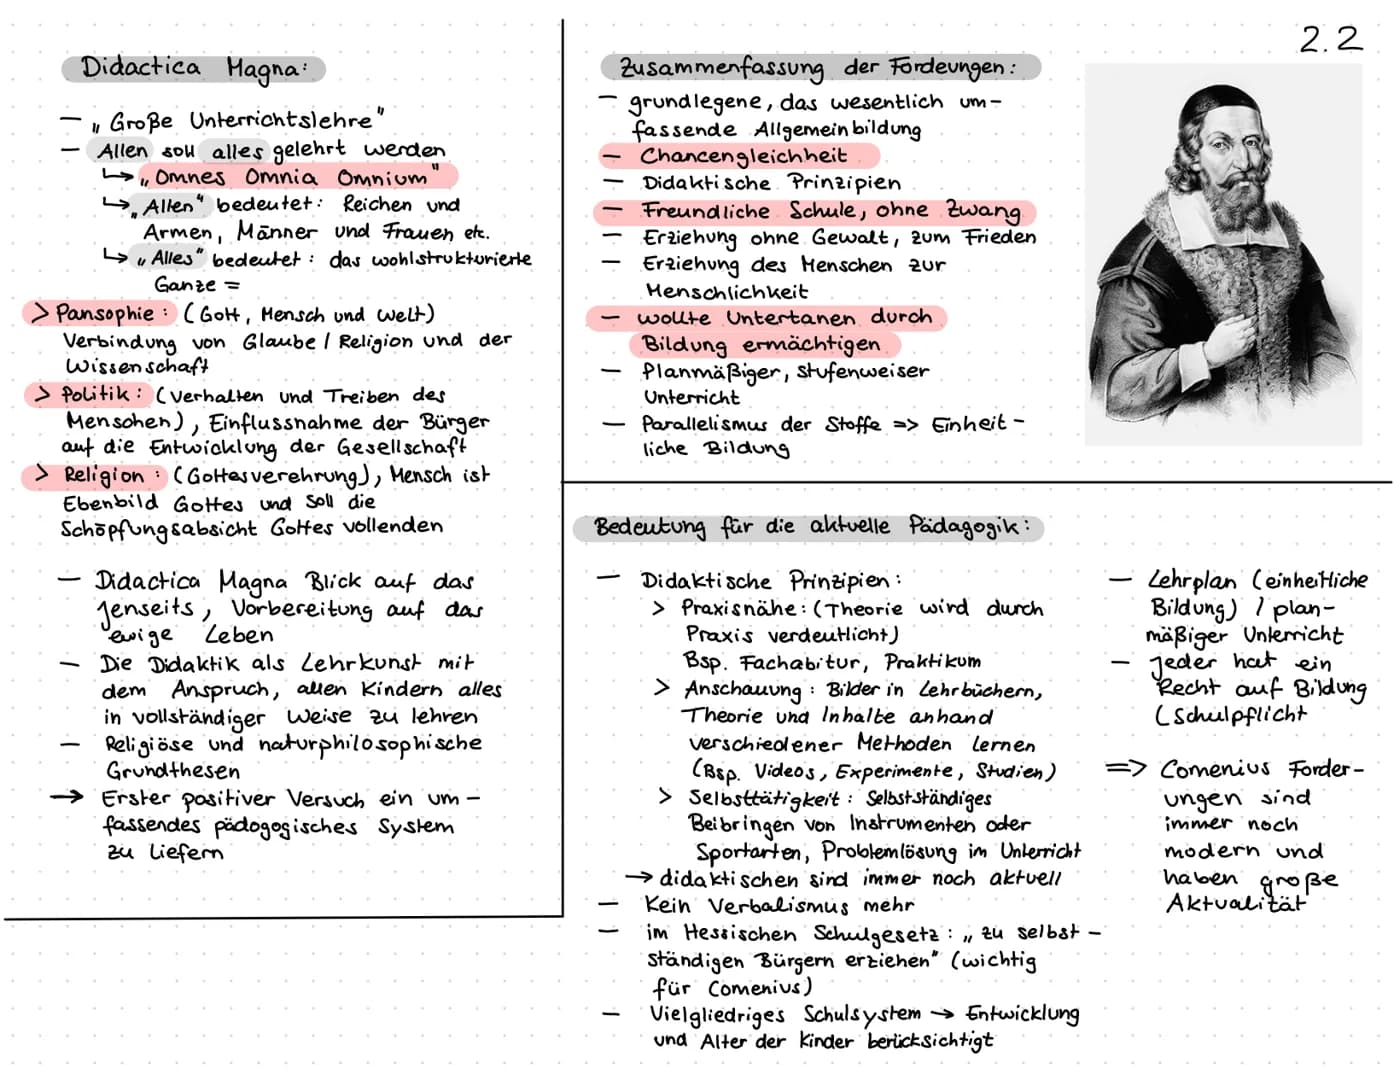 2.2
Didactica Magna:
– „Große Unterrichtslehre"
– Allen soll alles gelehrt werden
↳ „Omnes Omnia Omnium"
↳ „Allen" bedeutet: Reichen und
Armen, Männer und Frauen etc.
↳ „Alles" bedeutet: das wohlstrukturierte
Ganze =
> Pansophie: (Gott, Mensch und Welt)
Verbindung von Glaube / Religion und der
Wissenschaft
> Politik: (Verhalten und Treiben des
Menschen), Einflussnahme der Bürger
auf die Entwicklung der Gesellschaft
> Religion: (Gottesverehrung), Mensch ist
Ebenbild Gottes und soll die
Schöpfungsabsicht Gottes vollenden
– Didactica Magna Blick auf das
Jenseits, Vorbereitung auf das
ewige Leben
– Die Didaktik als Lehrkunst mit
dem Anspruch, allen Kindern alles
in vollständiger Weise zu lehren
– Religiöse und naturphilosophische
Grundthesen
→ Erster positiver Versuch ein um-
fassendes pädogogisches System
zu liefern
Zusammenfassung der Fordeungen:
– grundlegene, das wesentlich um-
fassende Allgemeinbildung
– Chancengleichheit
– Didaktische Prinzipien
– Freundliche Schule, ohne Zwang
– Erziehung ohne Gewalt, zum Frieden
– Erziehung des Menschen zur
Menschlichkeit
– wollte Untertanen durch
Bildung ermächtigen
– Planmäßiger, stufenweiser
Unterricht
– Parallelismus der Stoffe => Einheit-
liche Bildung
Bedeutung für die aktuelle Pädagogik:
– Didaktische Prinzipien:
> Praxisnähe: (Theorie wird durch
Praxis verdeutlicht)
Bsp. Fachabitur, Praktikum
> Anschauung: Bilder in Lehrbüchern,
Theorie und Inhalte anhand
verschiedener Methoden lernen
(Bsp. Videos, Experimente, Studien)
> Selbsttätigkeit: Selbstständiges
Beibringen von Instrumenten oder
Sportarten, Problemlösung im Unterricht
→ didaktischen sind immer noch aktuell
– Kein Verbalismus mehr
– im Hessischen Schulgesetz: „zu selbst-
ständigen Bürgern erziehen" (wichtig
für Comenius)
– Vielgliedriges Schulsystem → Entwicklung
und Alter der Kinder berücksichtigt
– Lehrplan (einheitliche
Bildung) / plan-
mäßiger Unterricht
– Jeder hat ein
Recht auf Bildung
(Schulpflicht
=> Comenius Forder-
ungen sind
immer noch
modern und
haben große
Aktualität